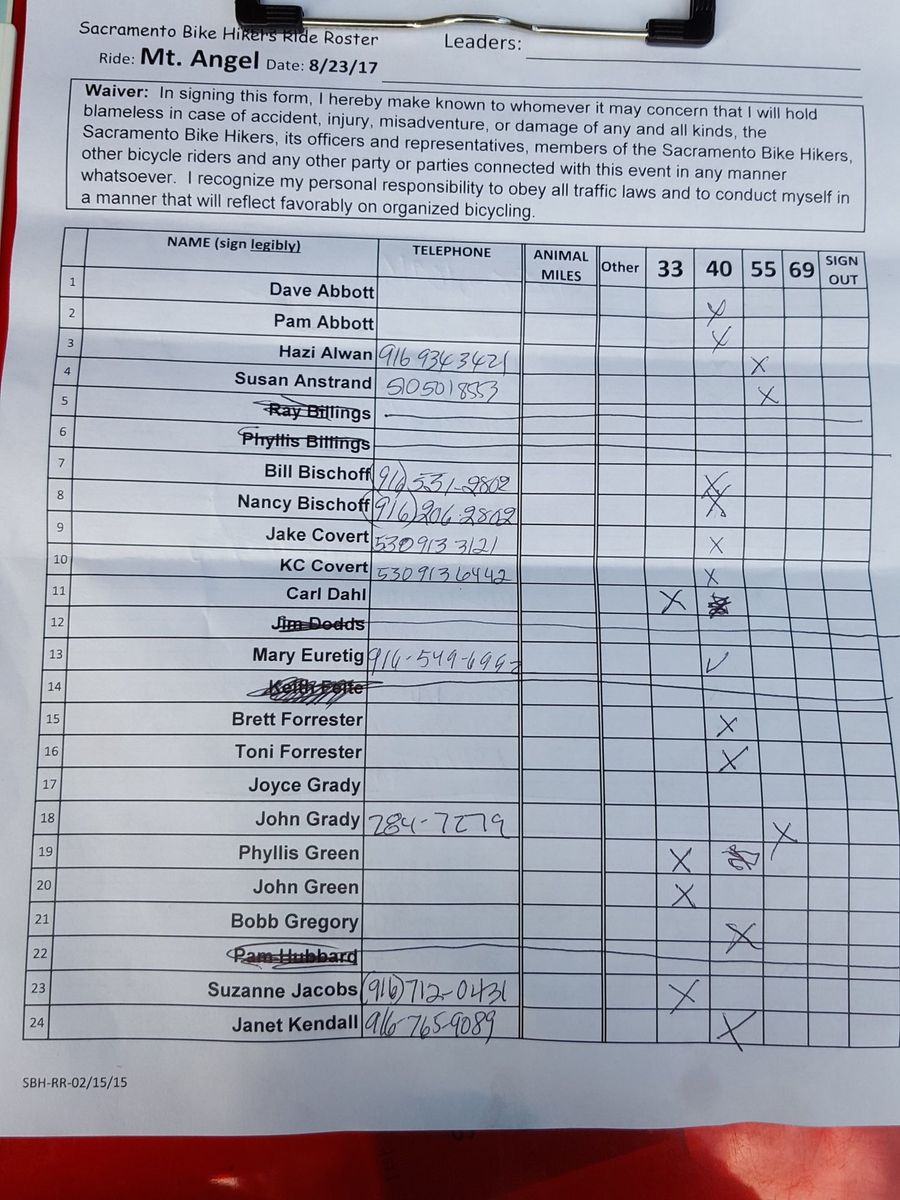 Sacramento Bike Hikers Ride Roster Leaders:
Ride: Mt. Angel Date: 8/23/17
Waiver: In signing this form, I hereby make known to whomever it may concern that I will hold
blameless in case of accident, injury, misadventure, or damage of any and all kinds, the
Sacramento Bike Hikers, its officers and representatives, members of the Sacramento Bike Hikers,
other bicycle riders and any other party or parties connected with this event in any manner
whatsoever. I recognize my personal responsibility to obey all traffic laws and to conduct myself in
a manner that will reflect favorably on organized bicycling.
NAME (sign legibly) TELEPHONE ANIMAL MILES Other 33 40 55 69 SIGN OUT
1 Dave Abbott X
2 Pam Abbott X
3 Hazi Alwan 916 934 3421 X
4 Susan Anstrand 5105018553 X
5 Ray Billings
6 Phyllis Billings
7 Bill Bischoff (916) 531-2802 X
8 Nancy Bischoff (916) 206-2802 X
9 Jake Covert 530 913 3121 X
10 KC Covert 530 913 6442 X
11 Carl Dahl X
12 Jim Dodds
13 Mary Euretig ✓
14 Keith Felte
15 Brett Forrester X
16 Toni Forrester X
17 Joyce Grady
18 John Grady 284-7279 X
19 Phyllis Green X
20 John Green X
21 Bobb Gregory X
22 Pam Hubbard
23 Suzanne Jacobs (916) 712-0431 X
24 Janet Kendall 916-765-9089 X
SBH-RR-02/15/15